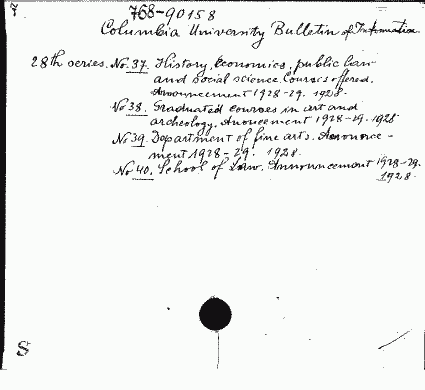 7
768-90158
Columbia University Bulletin of Information
28th series. No. 37. History, economics, public law
and social science. Courses offered.
Announcement 1928-29. 1928.
No 38. Graduated courses in art and
archeology. Anoucement 1928-29. 1928
No 39. Department of fine arts. Announce-
ment 1928-29. 1928.
No 40. School of Law. Announcement 1928-29.
1928.
S